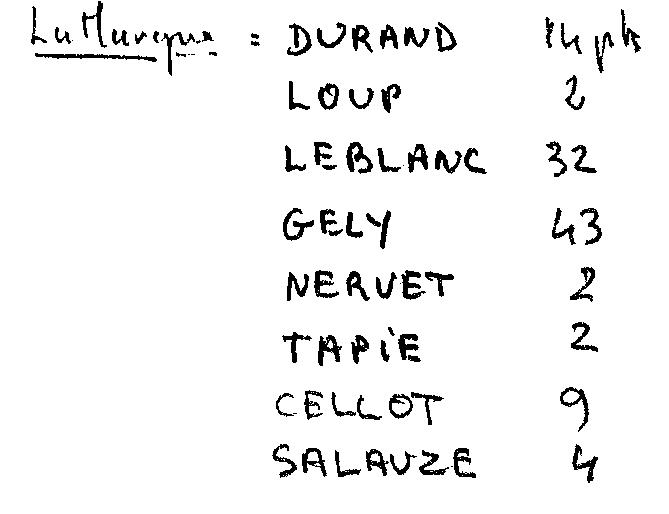 : DURAND 14 pts
LOUP 2
LEBLANC 32
GELY 43
NERVET 2
TAPIE 2
CELLOT 9
SALAUZE 4